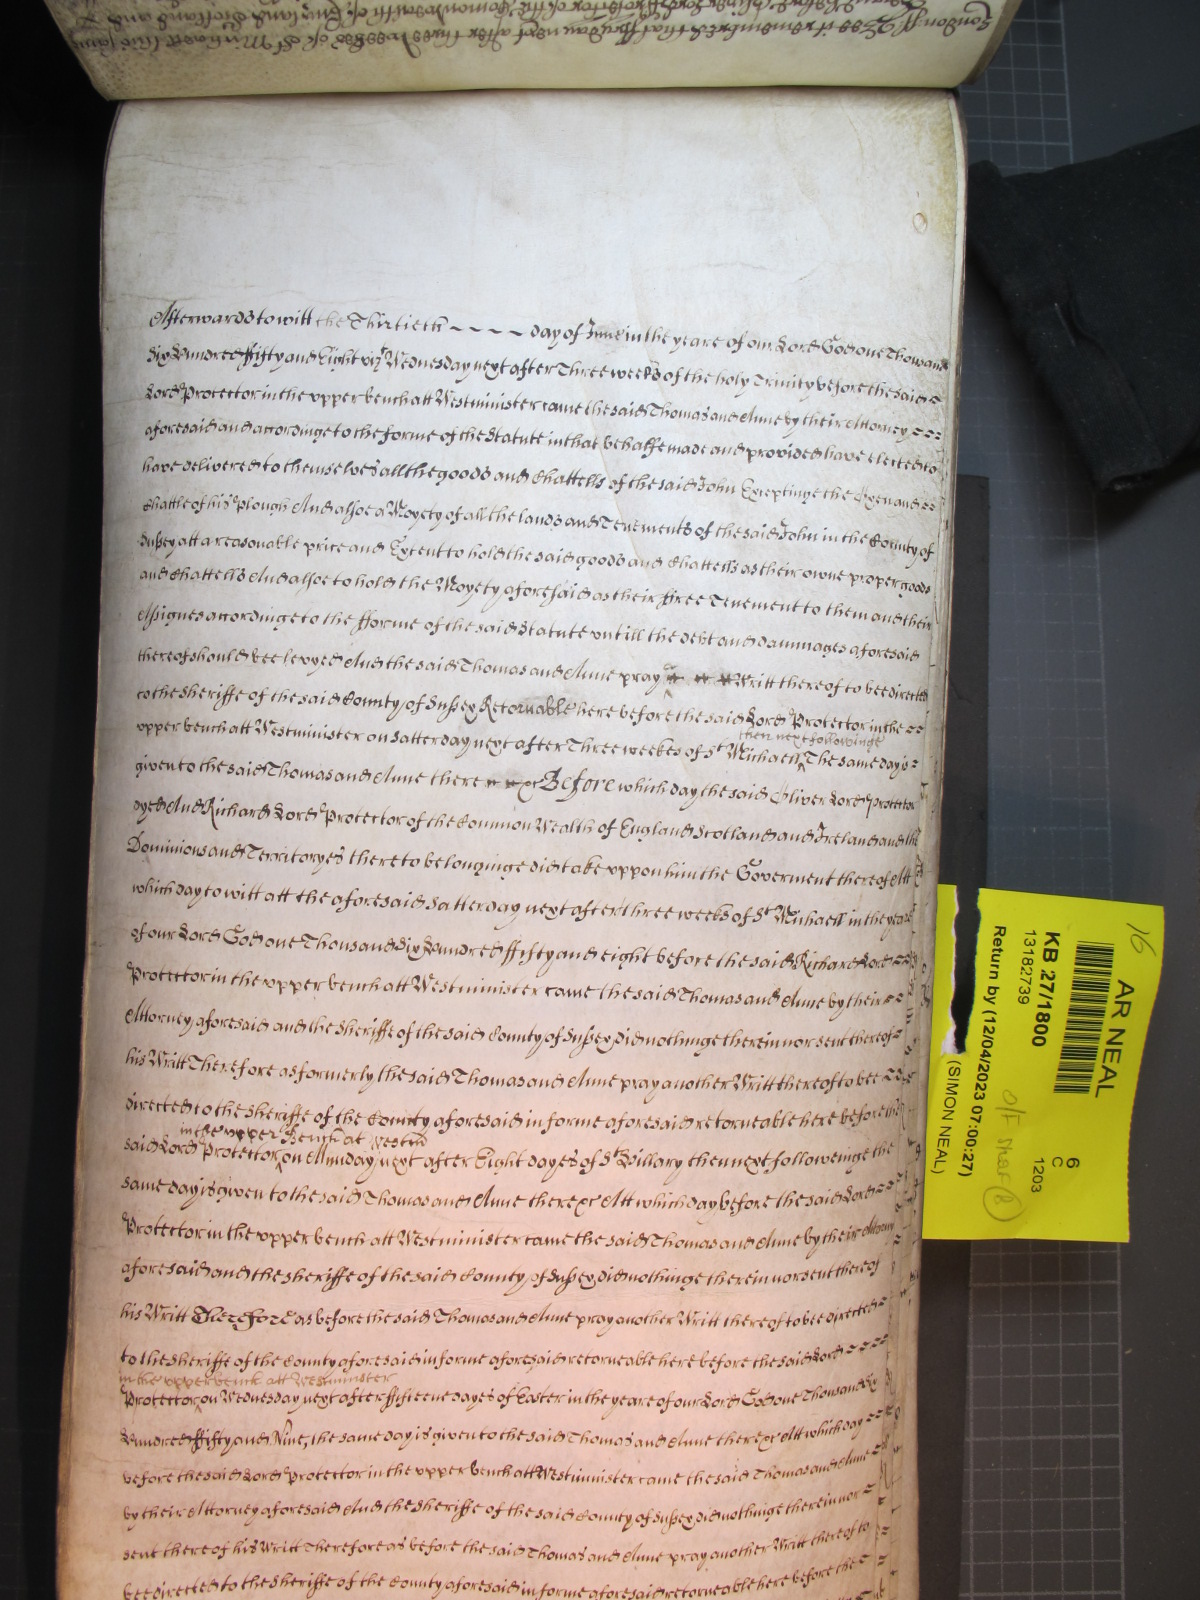 Afterwards to witt the Thirtieth ~ ~ ~ ~ day of June in the yeare of our Lord God one Thousand
Six Hundred ffifty and Eight viz Wednesday next after Three weeks of the holy Trinity before the said
Lord Protector in the upper bench att Westminister came the said Thomas and Anne by their Attorney
aforesaid and accordinge to the forme of the Statute in that behalfe made and provided have elected to
have delivered to themselves all the goods and Chattells of the said John Exceptinge the Oxen and
Chattle of his Plough And alsoe a Moyety of all the lands and Tenements of the said John in the County of
Sussex att a reasonable price and Extent to hold the said goods and Chattells as their owne proper goods
and Chattells And alsoe to hold the Moyety aforesaid as their ffree Tenement to them and their
Assignes accordinge to the fforme of the said Statute untill the debt and dammages aforesaid
thereof should bee levyed And the said Thomas and Anne pray a Writt thereof to bee directed
to the Sheriffe of the said County of Sussex Retornable here before the said Lord Protector in the
then next followinge
upper bench att Westminister on Satterday next after Three weekes of St Michaell The same day is
given to the said Thomas and Anne there Before which day the said Oliver Lord Protector
dyed And Richard Lord Protector of the Common Wealth of England Scotland and Ireland and the
Dominions and Territoryes thereto belonginge did take uppon him the Goverment thereof Att
which day to witt att the aforesaid Satterday next after three weeks of St Michaell in the yeare
of our Lord God one Thousand Six Hundred ffifty and eight before the said Richard Lord
Protector in the upper bench att Westminister came the said Thomas and Anne by their
Attorney aforesaid and the Sheriffe of the said County of Sussex did nothinge therein nor sent thereof
his Writt Therefore as formerly the said Thomas and Anne pray another Writt thereof to bee
directed to the Sheriffe of the County aforesaid in forme aforesaid retorneable here before the
in the upper Bench at Westm
said Lord Protector on Munday next after Eight dayes of St Hillary then next followeinge the
same day is given to the said Thomas and Anne there &c Att which day before the said Lord
Protector in the upper bench att Westminister came the said Thomas and Anne by their Attorny
aforesaid and the Sheriffe of the said County of Sussex did nothinge therein nor sent thereof
his Writt Therefore as before the said Thomas and Anne pray another Writt thereof to bee directed
to the Sheriffe of the County aforesaid in forme aforesaid retorneable here before the said Lord
in the upper bench att Westminister
Protector on Wednesday next after ffifteene dayes of Easter in the yeare of our Lord God one Thousand Six
Hundred ffifty and Nine, the same day is given to the said Thomas and Anne there &c Att which day
before the said Lord Protector in the upper bench att Westminister came the said Thomas and Anne
by their Attorney aforesaid And the Sheriffe of the said County of Sussex did nothinge therein nor
sent thereof his Writt Therefore as before the said Thomas and Anne pray another Writt thereof to
bee directed to the Sheriffe of the County aforesaid in forme aforesaid retorneable here before the
16
AR NEAL
KB 27/1800
13182739
Return by (12/04/2023 07:00:27)
(SIMON NEAL)
6
C
1203